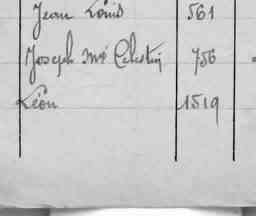 Jean Louis 561
Joseph Mie Célestin 756
Léon 1519